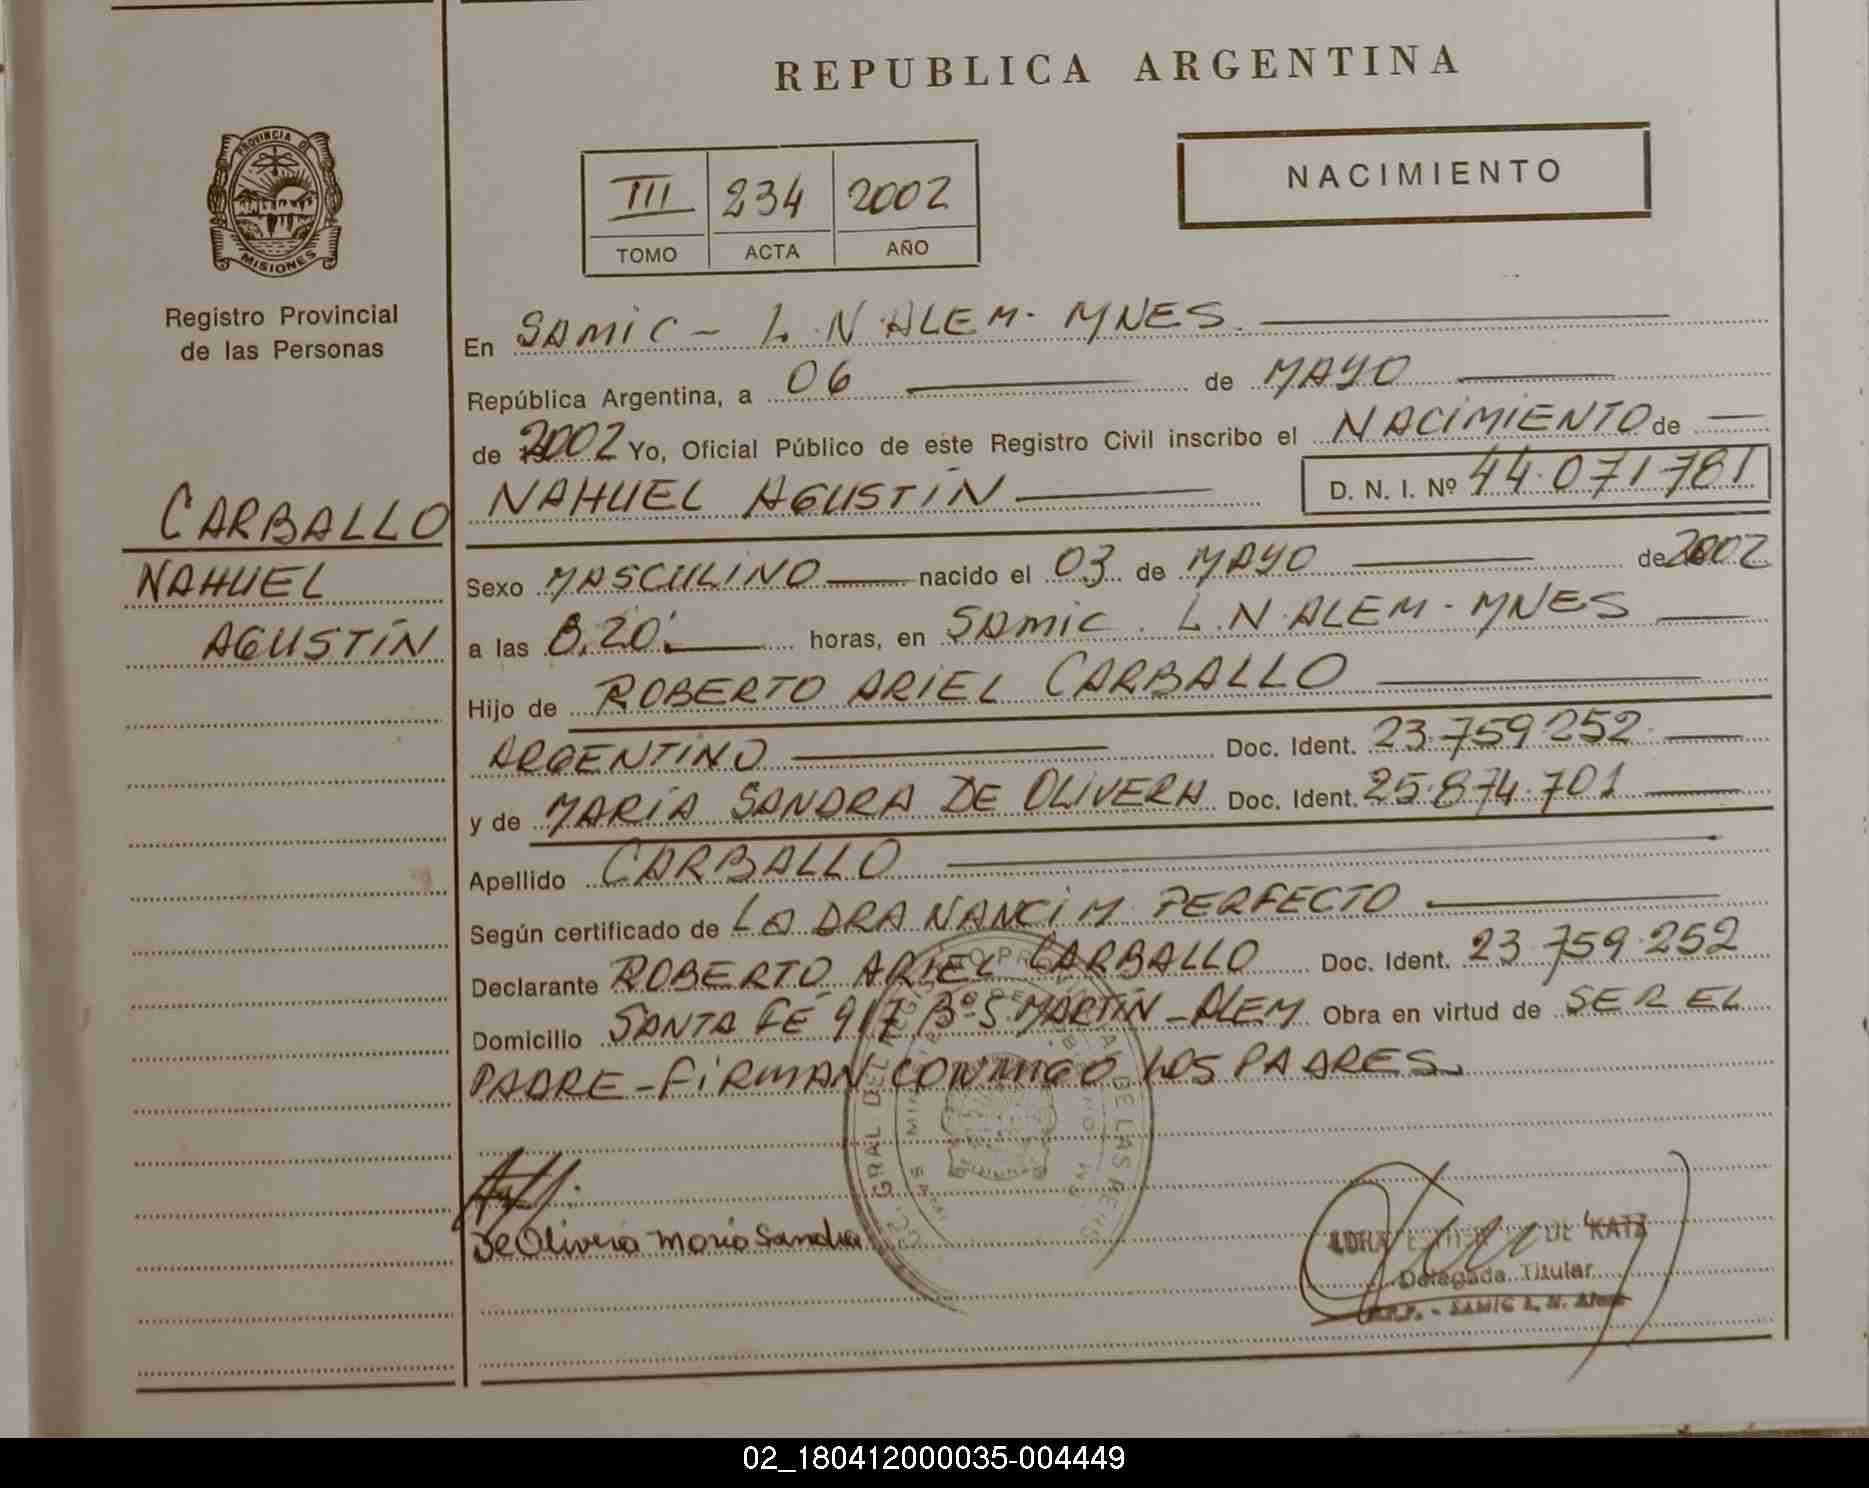 REPUBLICA ARGENTINA
PROVINCIA DE
MISIONES
Registro Provincial
de las Personas
III 234 2002
TOMO ACTA AÑO
NACIMIENTO
En SAMIC - L.N.ALEM. MNES.
República Argentina, a 06 de MAYO
de 2002 Yo, Oficial Público de este Registro Civil inscribo el NACIMIENTO de
NAHUEL AGUSTÍN D. N. I. Nº 44.071.781
CARBALLO
NAHUEL
AGUSTÍN
Sexo MASCULINO nacido el 03 de MAYO de 2002
a las 8.20 horas, en SAMIC. L.N.ALEM - MNES
Hijo de ROBERTO ARIEL CARBALLO
ARGENTINO Doc. Ident. 23.759.252
y de MARÍA SANDRA DE OLIVERA Doc. Ident. 25.874.701
Apellido CARBALLO
Según certificado de LA DRA NANCI M. PERFECTO
Declarante ROBERTO ARIEL CARBALLO Doc. Ident. 23.759.252
Domicilio SANTA FÉ 917 Bº S MARTÍN - ALEM Obra en virtud de SER EL
PADRE - FIRMAN CONMIGO LOS PADRES.
De Olivera Maria Sandra
DE KATZ
Delegada Titular
R.P.P. - SAMIC L. N. Alem
02_180412000035-004449